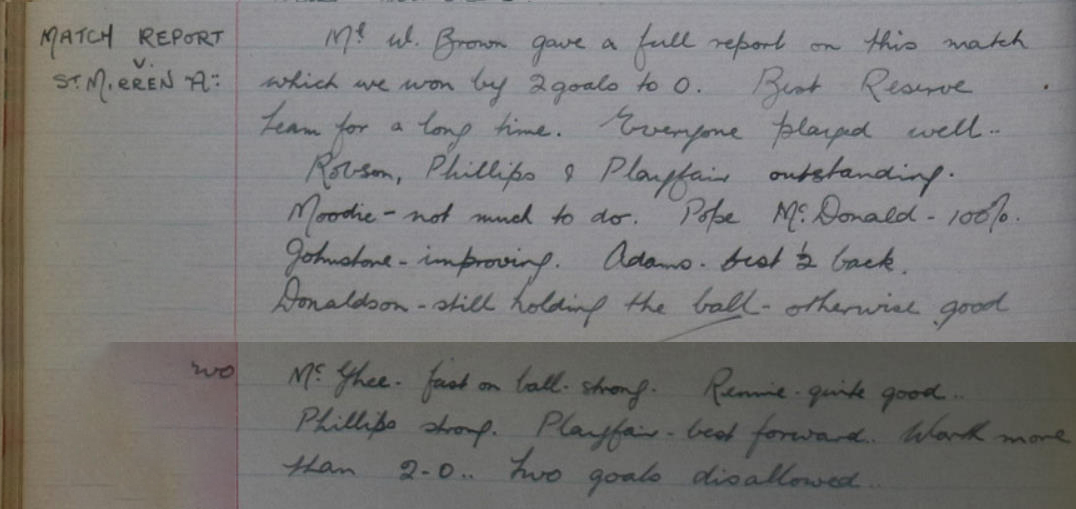 MATCH REPORT
V.
ST. MIRREN "A":
Mr W. Brown gave a full report on this match
which we won by 2 goals to 0. Best Reserve
team for a long time. Everyone played well..
Robson, Phillips & Playfair outstanding.
Moodie - not much to do. Pope Mc.Donald - 100%.
Johnstone - improving. Adams - best ½ back.
Donaldson - still holding the ball - otherwise good
Mc Ghee - fast on ball - strong. Rennie - quite good..
Phillips strong. Playfair - best forward.. Worth more
than 2-0.. Two goals disallowed..